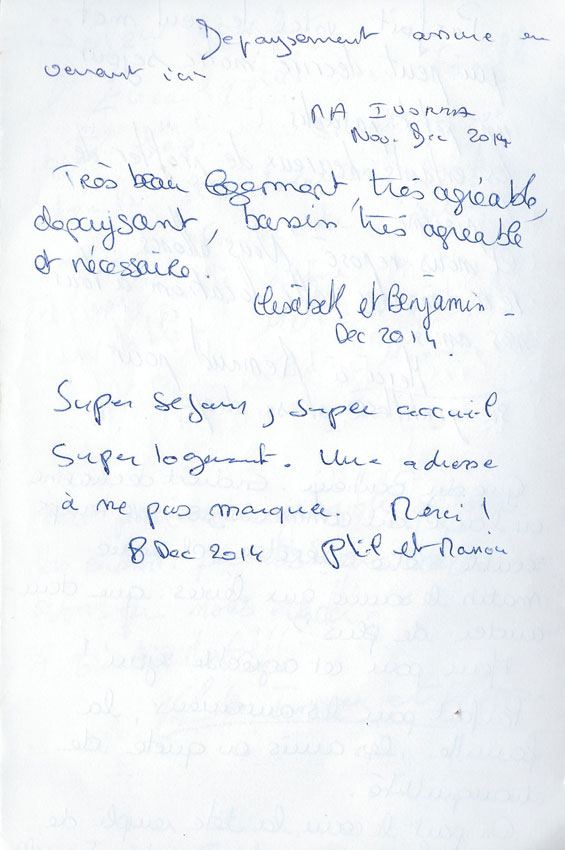 Depaysement assuré en
venant ici
MA IVORRA
Nov. Dec 2014
Très beau logement, très agréable,
depaysant, bassin très agréable
et nécessaire.
Elisabeth et Benjamin -
Dec 2014.
Super sejour, super accueil
Super logement. Une adresse
à ne pas manquer. Merci !
8 Dec 2014 Phil et Manon